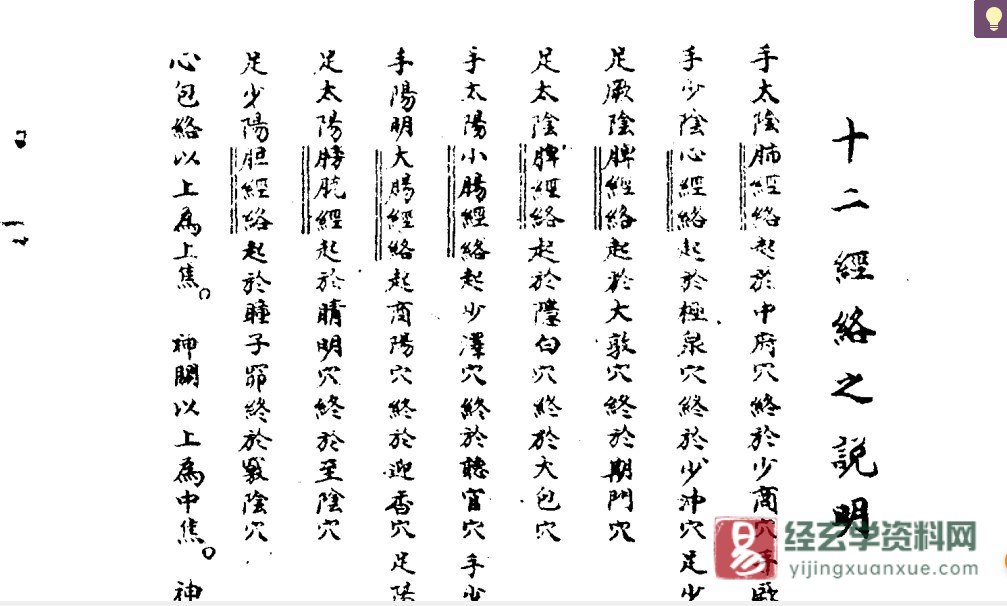 十二經絡之說明
手太陰肺經絡起於中府穴終於少商穴手厥
手少陰心經絡起於極泉穴終於少沖穴足少
足厥陰脾經絡起於大敦穴終於期門穴
足太陰脾經絡起於隱白穴終於大包穴
手太陽小腸經絡起少澤穴終於聽宮穴手少
手陽明大腸經絡起商陽穴終於迎香穴足陽
足太陽膀胱經起於睛明穴終於至陰穴
足少陽胆經絡起於瞳子窌終於竅陰穴
心包絡以上為上焦。神闕以上為中焦。神
经玄学资料网
yijingxuanxue.com
易